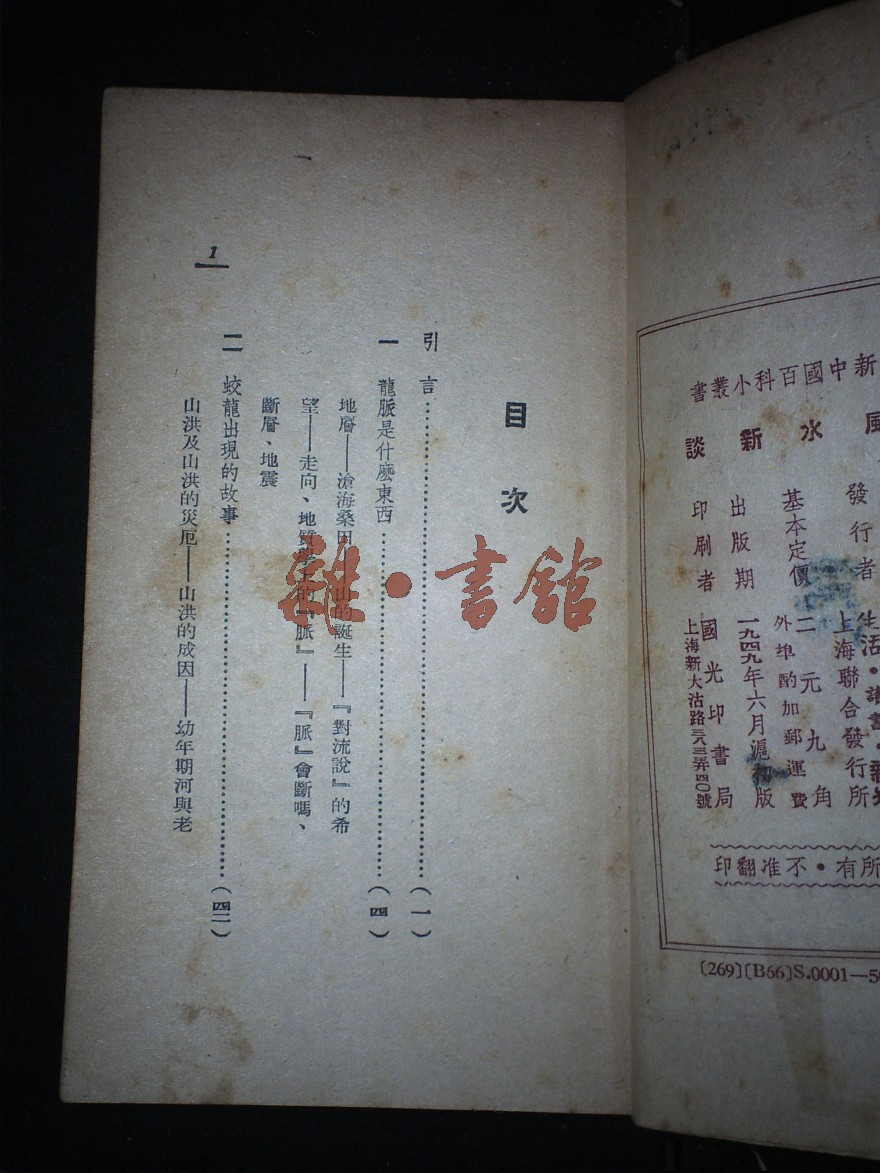 新中國百科小叢書
風水新談
發行者 生活・讀書・新知
上海聯合發行所
基本定價 二元九角
外埠酌加郵運費
出版期 一九四九年六月滬初版
印刷者 國光印書局
上海新大沽路三八三弄四〇號
所有・不准翻印
〔269〕〔B66〕S.0001—5
目次
引言……(一)
一 龍脈是什麽東西……(四)
地層——滄海桑田——山的誕生——『對流說』的希
望——走向、地質學上的『脈』——『脈』會斷嗎、
斷層、地震
二 蛟龍出現的故事……(四二)
山洪及山洪的災厄——山洪的成因——幼年期河與老
1
雜・書館